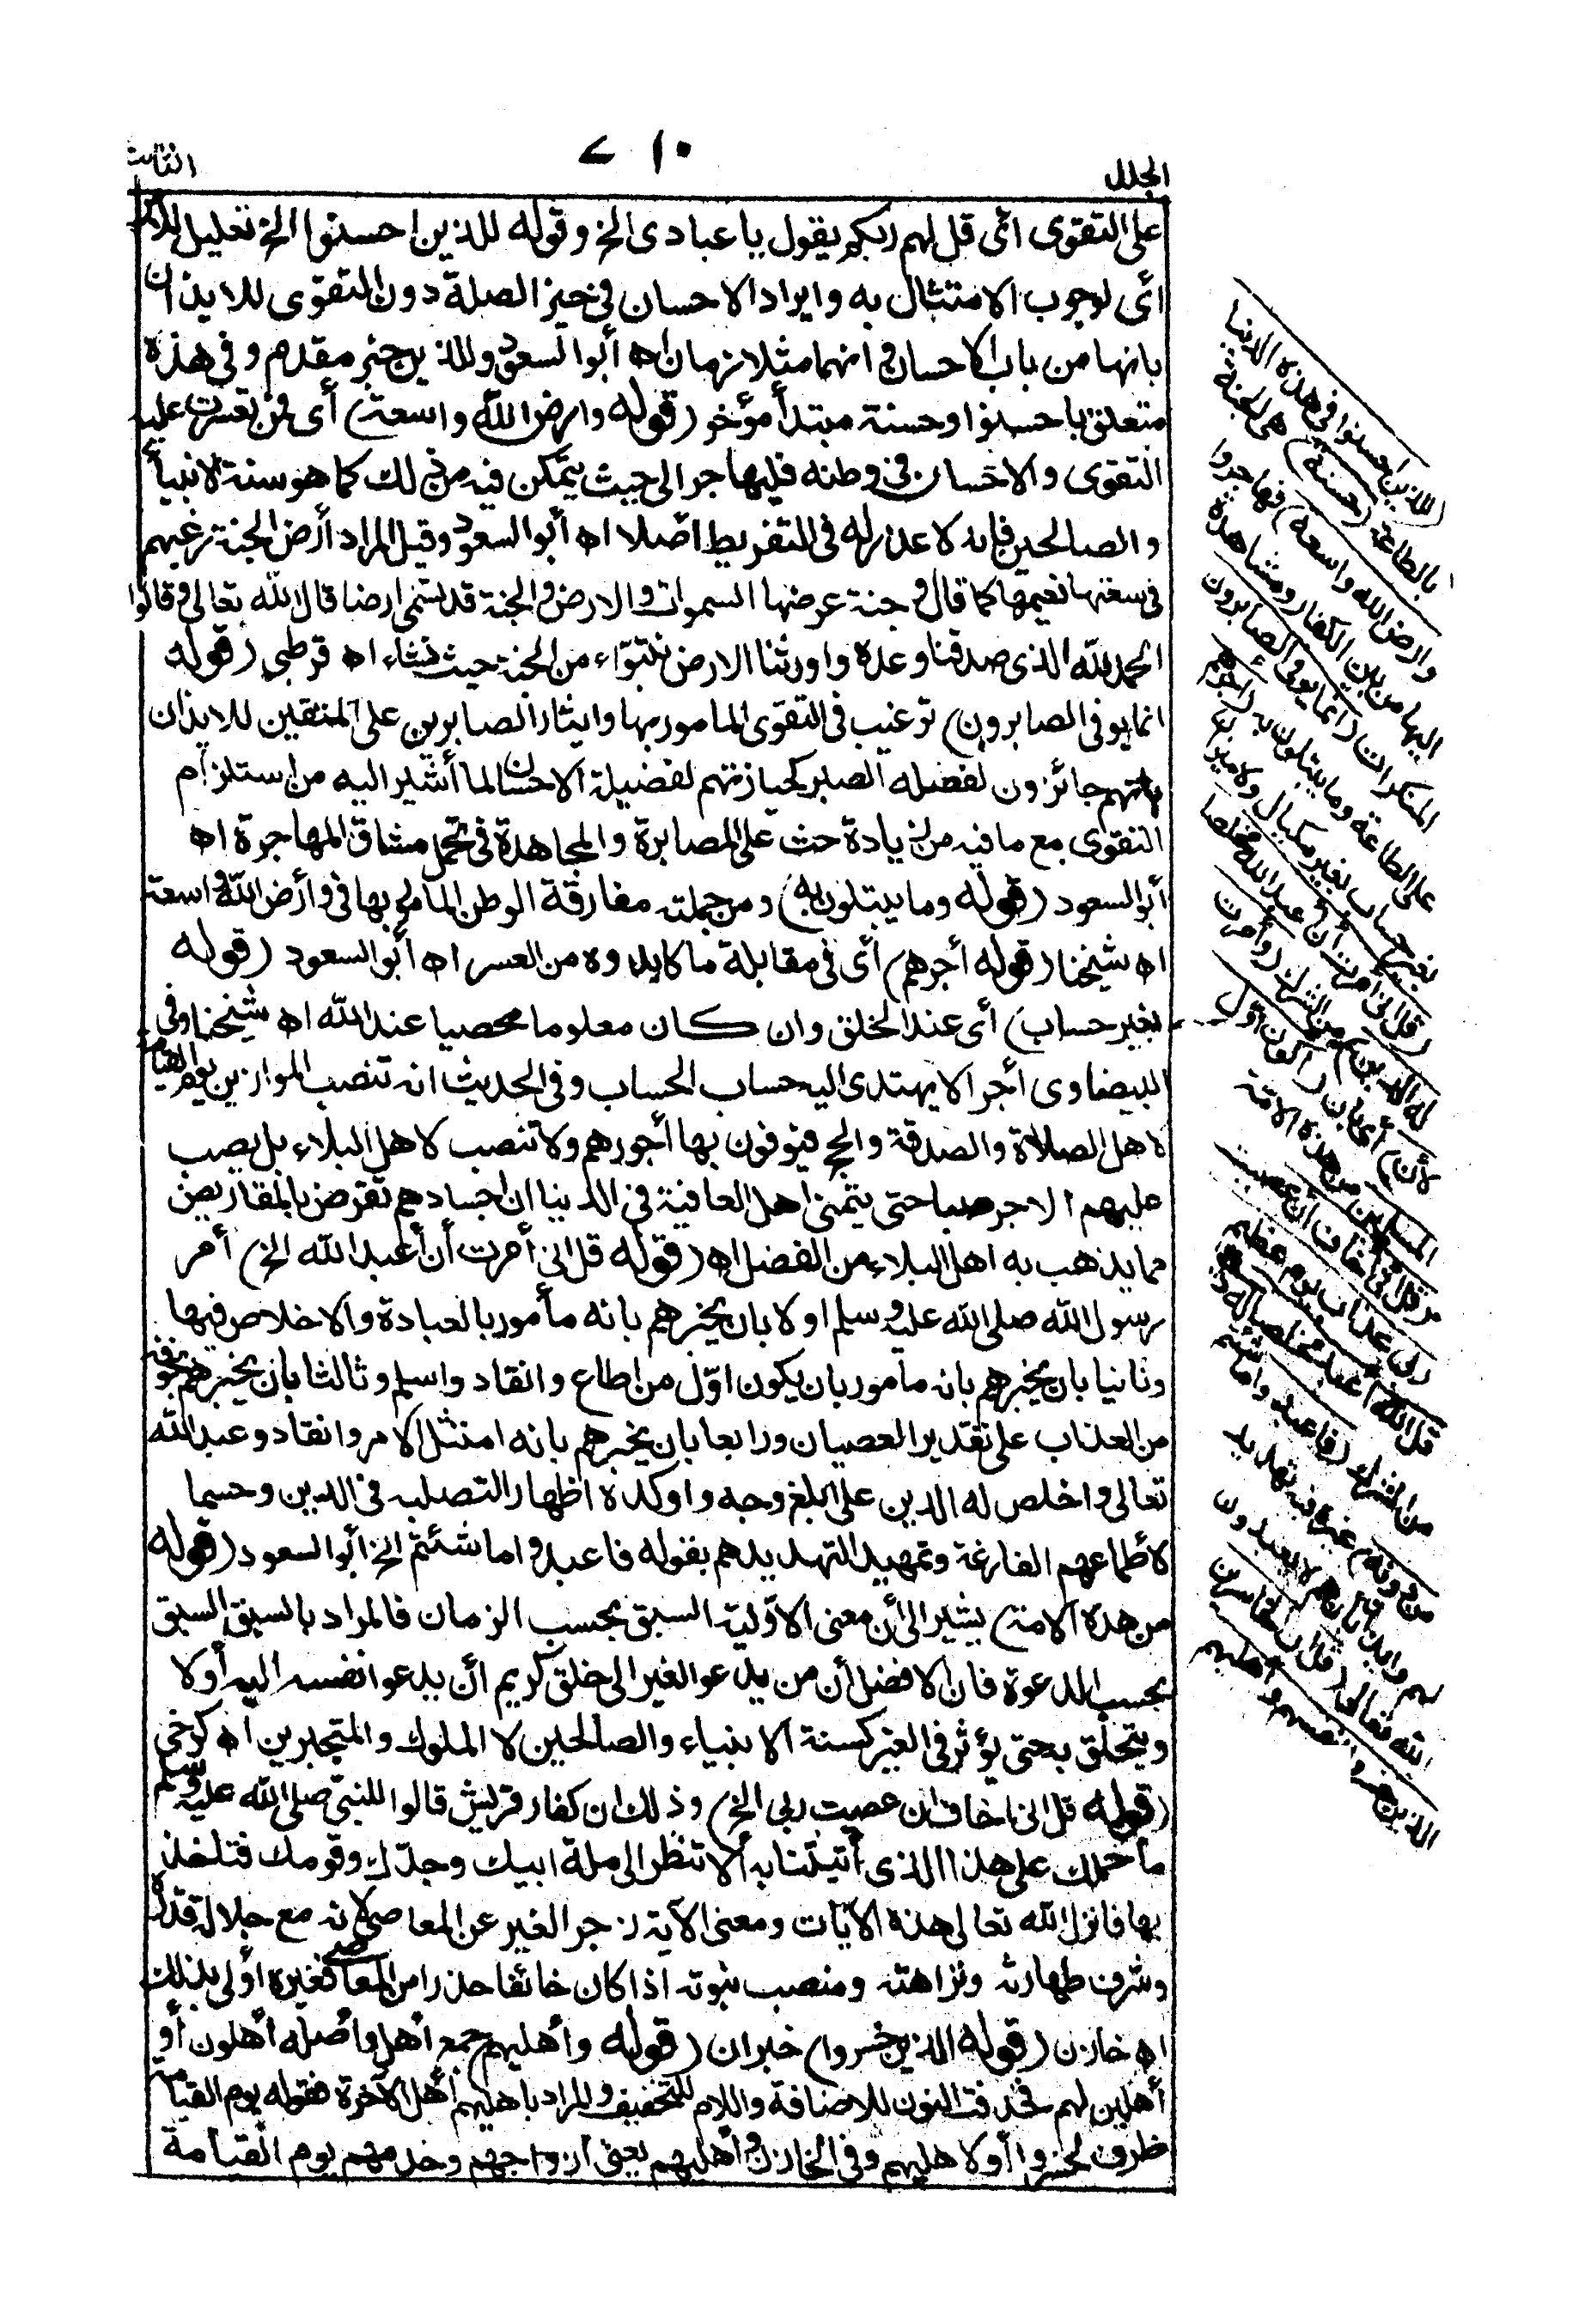 الجلد
٧١٠
الثالث
على التقوى أى قل لهم ربكم يقول يا عبادى الخ وقوله للذين احسنوا الخ تعليل للامر
أى لوجوب الامتثال به وايراد الاحسان فى حيز الصلة دون التقوى للايذان
بانها من باب الاحسان وانهما متلازمان اه أبو السعود وللذين خبر مقدم وفى هذه
متعلق باحسنوا وحسنة مبتدأ مؤخر (قوله وارض الله واسعة) أى فمن تعسرت عليه
التقوى والاحسان فى وطنه فليهاجر الى حيث يتمكن فيه من ذلك كما هو سنة الانبياء
والصالحين فإنه لا عذر له فى التفريط اصلا اه أبو السعود وقيل المراد أرض الجنة رغبهم
فى سعتها نعيمها كما قال وجنة عرضها السموات والارض والجنة قد تسمى ارضا قال الله تعالى وقالوا
الحمد لله الذى صدقنا وعده واورثنا الارض نتبوّاء من الجنة حيث نشاء اه قرطبى (قوله
انما يوفى الصابرون) ترغيب فى التقوى المامور بها وايثار الصابرين على المتقين للايذان
بانهم حائزون لفضيله الصبر كحيازتهم لفضيلة الاحسان لما أشير اليه من استلزام
التقوى مع ما فيه من زيادة حث على المصابرة والمجاهدة فى تحمل مشاق المهاجرة اه
أبو السعود (قوله وما يبتلون به) ومن جملته مفارقة الوطن المأمور بها فى وأرض الله واسعة
اه شيخنا (قوله أجرهم) أى فى مقابلة ما كابدوه من العسر اه أبو السعود (قوله
بغير حساب) أى عند الخلق وان كان معلوما محصيا عند الله اه شيخنا وفى
البيضاوى أجرا لا يهتدى اليه حساب الحساب وفى الحديث انه تنصب الموازين يوم القيامة
لاهل الصلاة والصدقة والحج فيوفون بها أجورهم ولا تنصب لاهل البلاء بل يصب
عليهم الاجر صبا حتى يتمنى اهل العافية فى الدنيا ان اجسادهم تقرض بالمقاريض
مما يذهب به اهل البلاء من الفضل اه (قوله قل انى أمرت أن أعبد الله الخ) أمر
رسول الله صلى الله عليه وسلم اولا بان يخبرهم بانه مأمور بالعبادة والاخلاص فيها
وثانيا بان يخبرهم بانه مامور بان يكون اوّل من اطاع وانقاد واسلم وثالثا بان يخبرهم بخوفه
من العذاب على تقدير العصيان ورابعا بان يخبرهم بانه امتثل الامر وانقاد وعبد الله
تعالى واخلص له الدين على ابلغ وجه واوكده اظهار التصلبه فى الدين وحسما
لاطماعهم الفارغة وتمهيد التهديدهم بقوله فاعبدوا ما شئتم الخ أبو السعود (قوله
من هذه الامة) يشير الى أن معنى الاوّلية السبق بحسب الزمان فالمراد بالسبق السبق
بحسب الدعوة فان الافضل أن من يدعو الغير الى خلق كريم أن يدعو نفسه اليه أولا
ويتخلق به حتى يؤثر فى الغير كسنة الانبياء والصالحين لا الملوك والمتجبرين اه كرخى
(قوله قل انى اخاف ان عصيت ربى الخ) وذلك ان كفار قريش قالوا للنبى صلى الله عليه وسلم
ما حملك على هذا الذى أتيتنا به ألا تنظر الى ملة ابيك وجدّك وقومك فتاخذ
بها فانزل الله تعالى هذه الآيات ومعنى الآية زجر الغير عن المعاصى لانه مع جلالة قدره
وشرف طهارته ونزاهته ومنصب نبوته اذا كان خائفا حذرا من المعاصى فغيره أولى بذلك
اه خازن (قوله الذين خسروا) خبر ان (قوله وأهليهم) جمع أهل وأصله أهلون أو
أهلين لهم فحذفت النون للاضافة واللام للتخفيف والمراد باهليهم أهل الآخرة فقوله يوم القيامة
ظرف لخسروا أو لاهليهم وفى الخازن وأهليهم يعنى أزواجهم وخدمهم يوم القيامة
(للذين احسنوا فى هذه الدنيا)
بالطاعة (حسنة) هى الجنة
(وارض الله واسعة) فهاجروا
اليها من بين الكفار ومشاهدة
المنكرات (انما يوفى الصابرون)
على الطاعة وما يبتلون به (اجرهم
بغير حساب) بغير مكيال ولا ميزان
(قل انى امرت ان أعبد الله مخلصا
له الدين) من الشرك (وأمرت
لأن) أى بان (اكون اوّل
المسلمين) من هذه الامة
(قل انى اخاف ان عصيت
ربى عذاب يوم عظيم
قل الله اعبد مخلصا له دينى)
من الشرك (فاعبدوا ما شئتم
من دونه) غيره فيه تهديد
لهم وايذان بانهم لا يعبدون
الله تعالى (قل ان الخاسرين
الذين خسروا انفسهم واهليهم